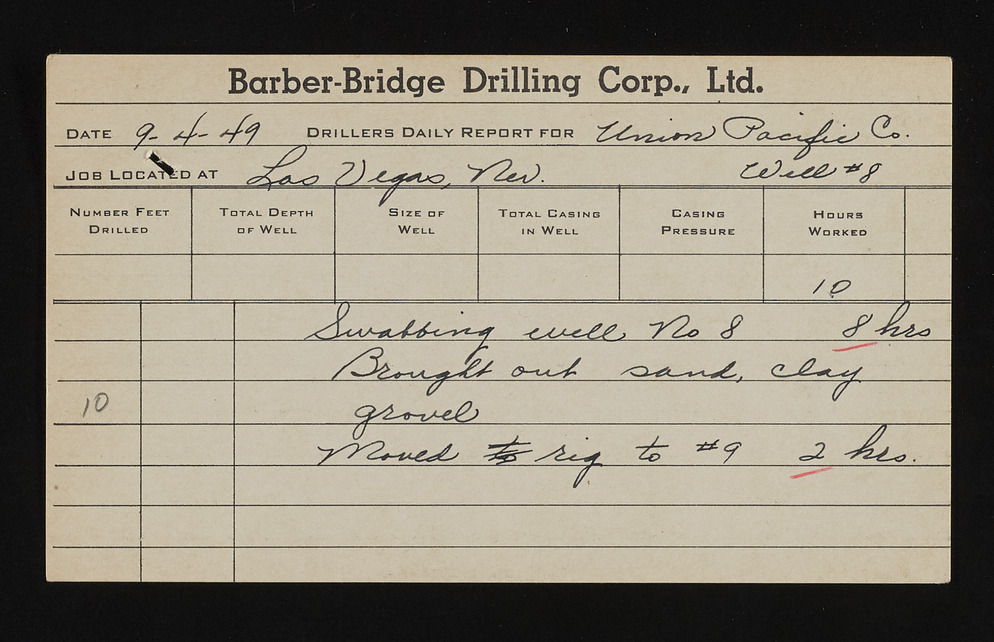 Barber-Bridge Drilling Corp., Ltd.
DATE 9-4-49 DRILLERS DAILY REPORT FOR Union Pacific Co.
JOB LOCATED AT Las Vegas, Nev. Well #8
NUMBER FEET DRILLED TOTAL DEPTH OF WELL SIZE OF WELL TOTAL CASING IN WELL CASING PRESSURE HOURS WORKED
10
Swabbing well No 8 8 hrs
Brought out sand, clay
10 gravel
Moved to rig to #9 2 hrs.